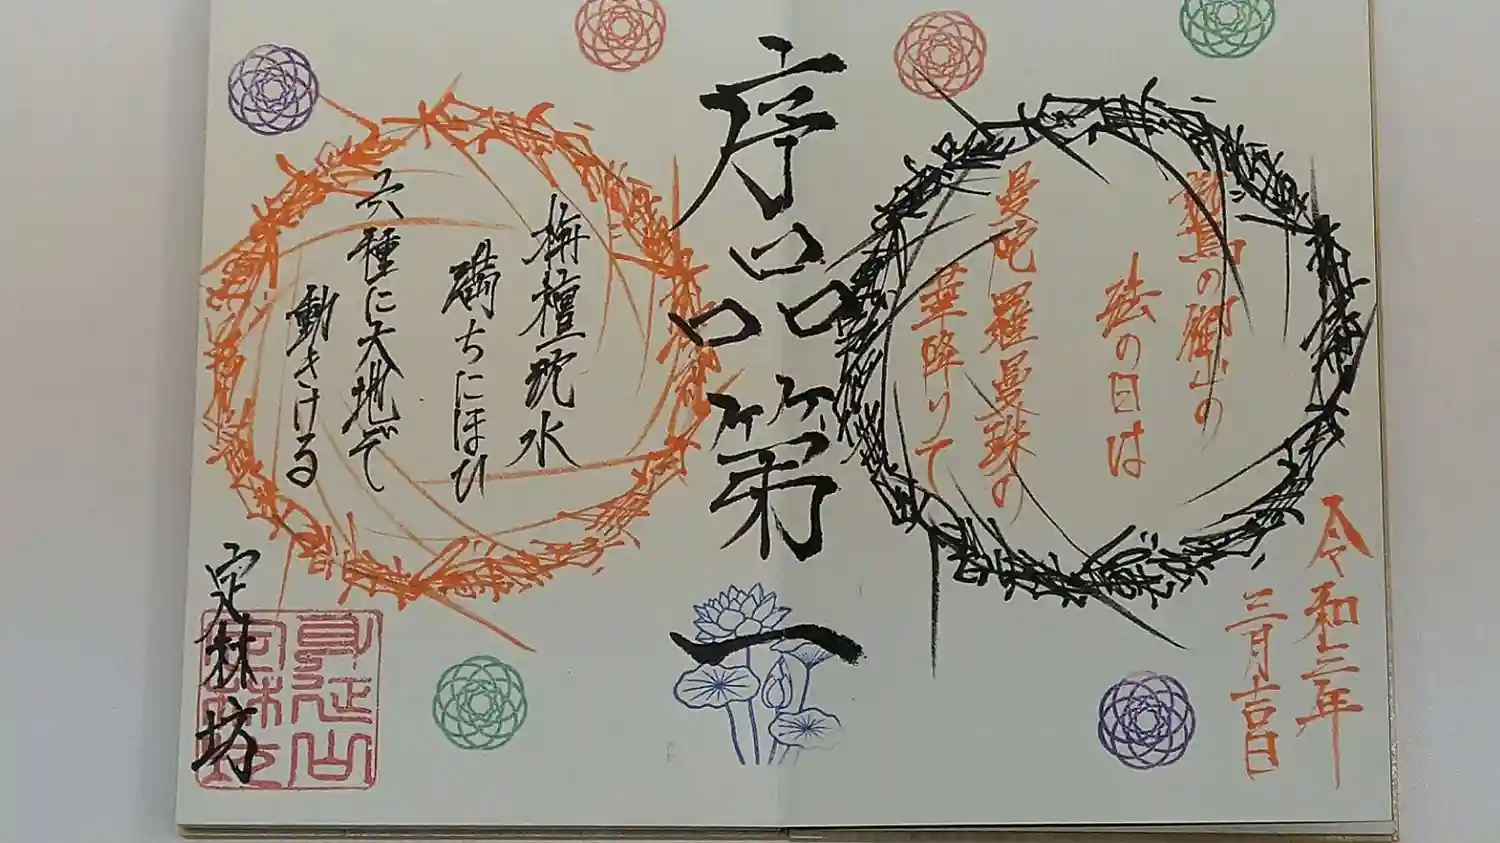 令和三年
三月吉日
鷲の御山の
法の日は
曼陀羅曼珠の
華降りて
序品第一
栴檀沈水
満ちにほひ
六種に大地ぞ
動きける
定林坊
身延山
定林坊